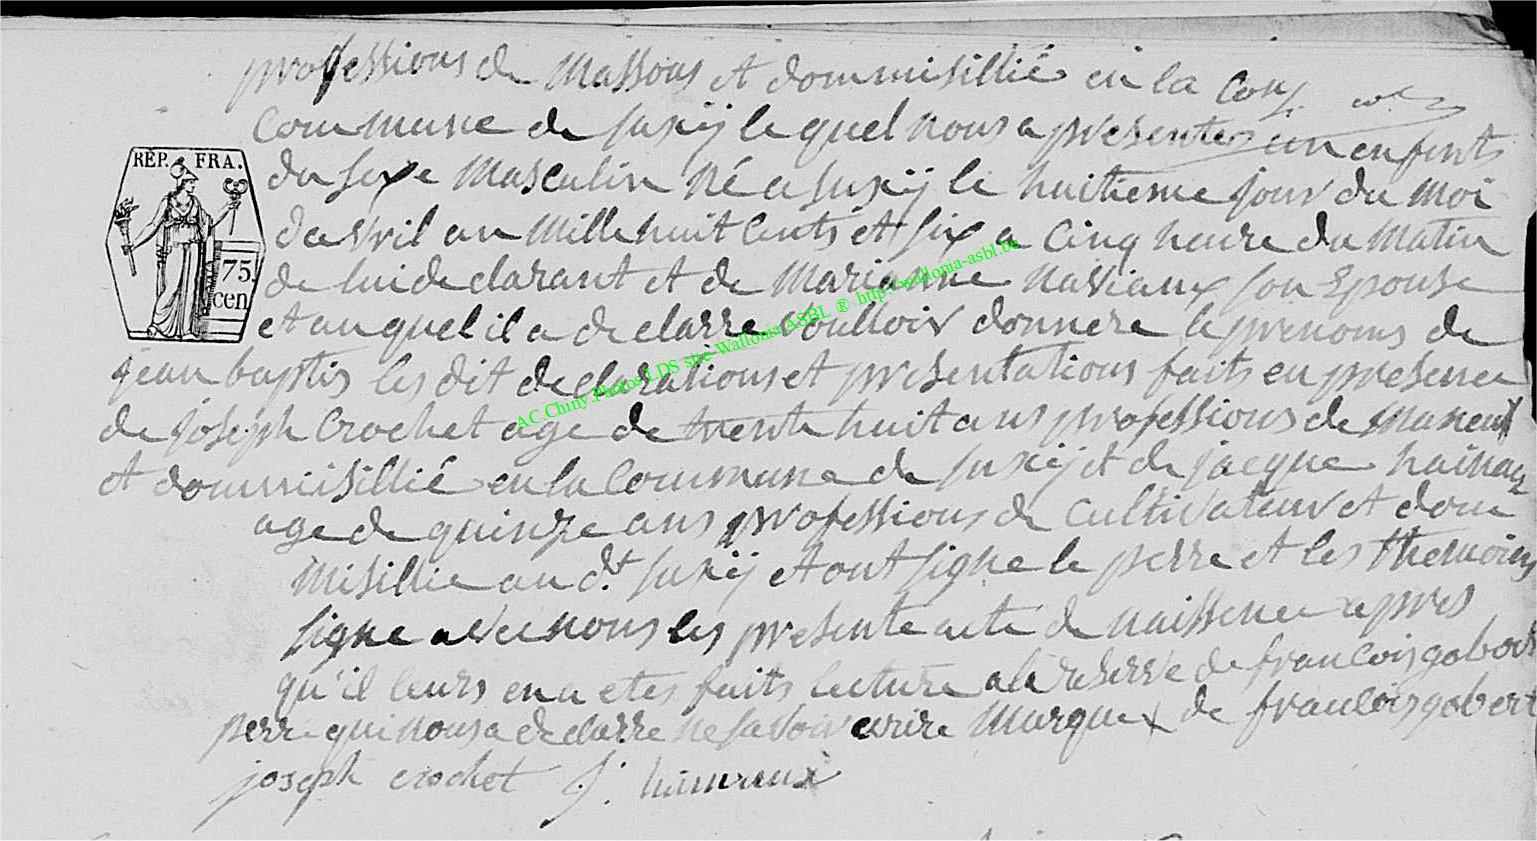 professions de Massons et dommisillié en la Con
Commune de Suxÿ le quel nous a presentes un enfents
REP. FRA.
du sexe Masculin né a Suxÿ le huitieme jour du Moi
davril an Mille huit Cents et six a Cinq heure du Matin
75.
cen
de lui declarant et de Marianne naviaux son Epouse
et au quel il a declarre voulloir donnere le prenoms de
jean baptis les dit declarations et presentations faits en presence
de joseph Crochet age de trente huit ans professions de Maneux
et dommisillié en la Commune de Suxÿ et de jacque
age de quinze ans professions de Cultivateur et dom
misillie au dt Suxÿ et ont signe le perre et les themoins
signe avec nous les presente acte de naissence apres
qu'il leurs en a etes faits lecture a la reserve de francois gobert
perre qui nous a declarre ne savoir erire Marque x de francois gobert
joseph crochet J.
AC Chiny Photos LDS site Wallonia ASBL ® http://wallonia-asbl.be